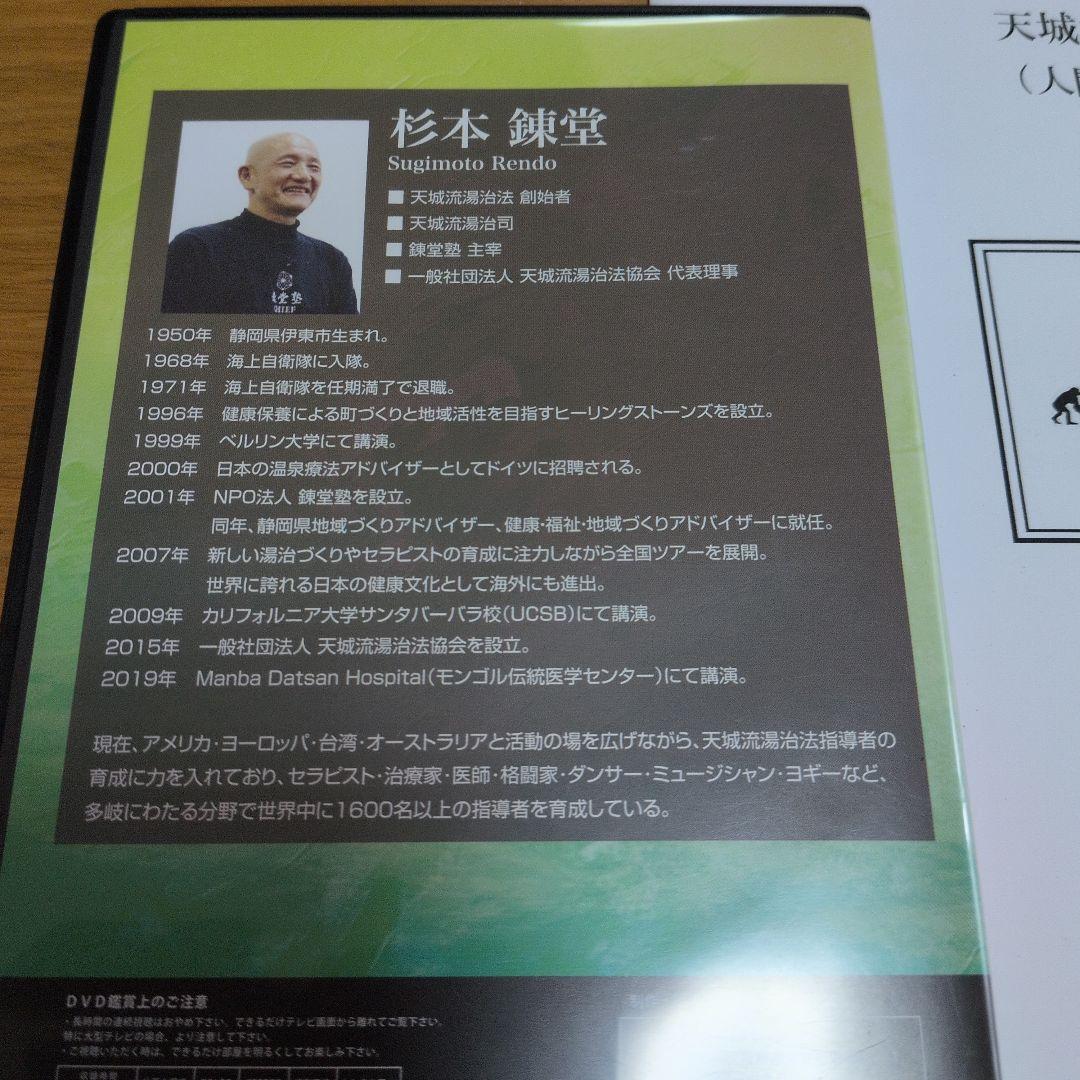 杉本 錬堂
Sugimoto Rendo
■ 天城流湯治法 創始者
■ 天城流湯治司
■ 錬堂塾 主宰
■ 一般社団法人 天城流湯治法協会 代表理事
堂塾
HIEF
1950年 静岡県伊東市生まれ。
1968年 海上自衛隊に入隊。
1971年 海上自衛隊を任期満了で退職。
1996年 健康保養による町づくりと地域活性を目指すヒーリングストーンズを設立。
1999年 ベルリン大学にて講演。
2000年 日本の温泉療法アドバイザーとしてドイツに招聘される。
2001年 NPO法人 錬堂塾を設立。
同年、静岡県地域づくりアドバイザー、健康・福祉・地域づくりアドバイザーに就任。
2007年 新しい湯治づくりやセラピストの育成に注力しながら全国ツアーを展開。
世界に誇れる日本の健康文化として海外にも進出。
2009年 カリフォルニア大学サンタバーバラ校(UCSB)にて講演。
2015年 一般社団法人 天城流湯治法協会を設立。
2019年 Manba Datsan Hospital(モンゴル伝統医学センター)にて講演。
現在、アメリカ・ヨーロッパ・台湾・オーストラリアと活動の場を広げながら、天城流湯治法指導者の
育成に力を入れており、セラピスト・治療家・医師・格闘家・ダンサー・ミュージシャン・ヨギーなど、
多岐にわたる分野で世界中に1600名以上の指導者を育成している。
DVD鑑賞上のご注意
・長時間の連続視聴はおやめ下さい。できるだけテレビ画面から離れてご覧下さい。
特に大型テレビの場合、より注意して下さい。
・ご視聴いただく時は、できるだけ部屋を明るくしてお楽しみ下さい。
天城
(人